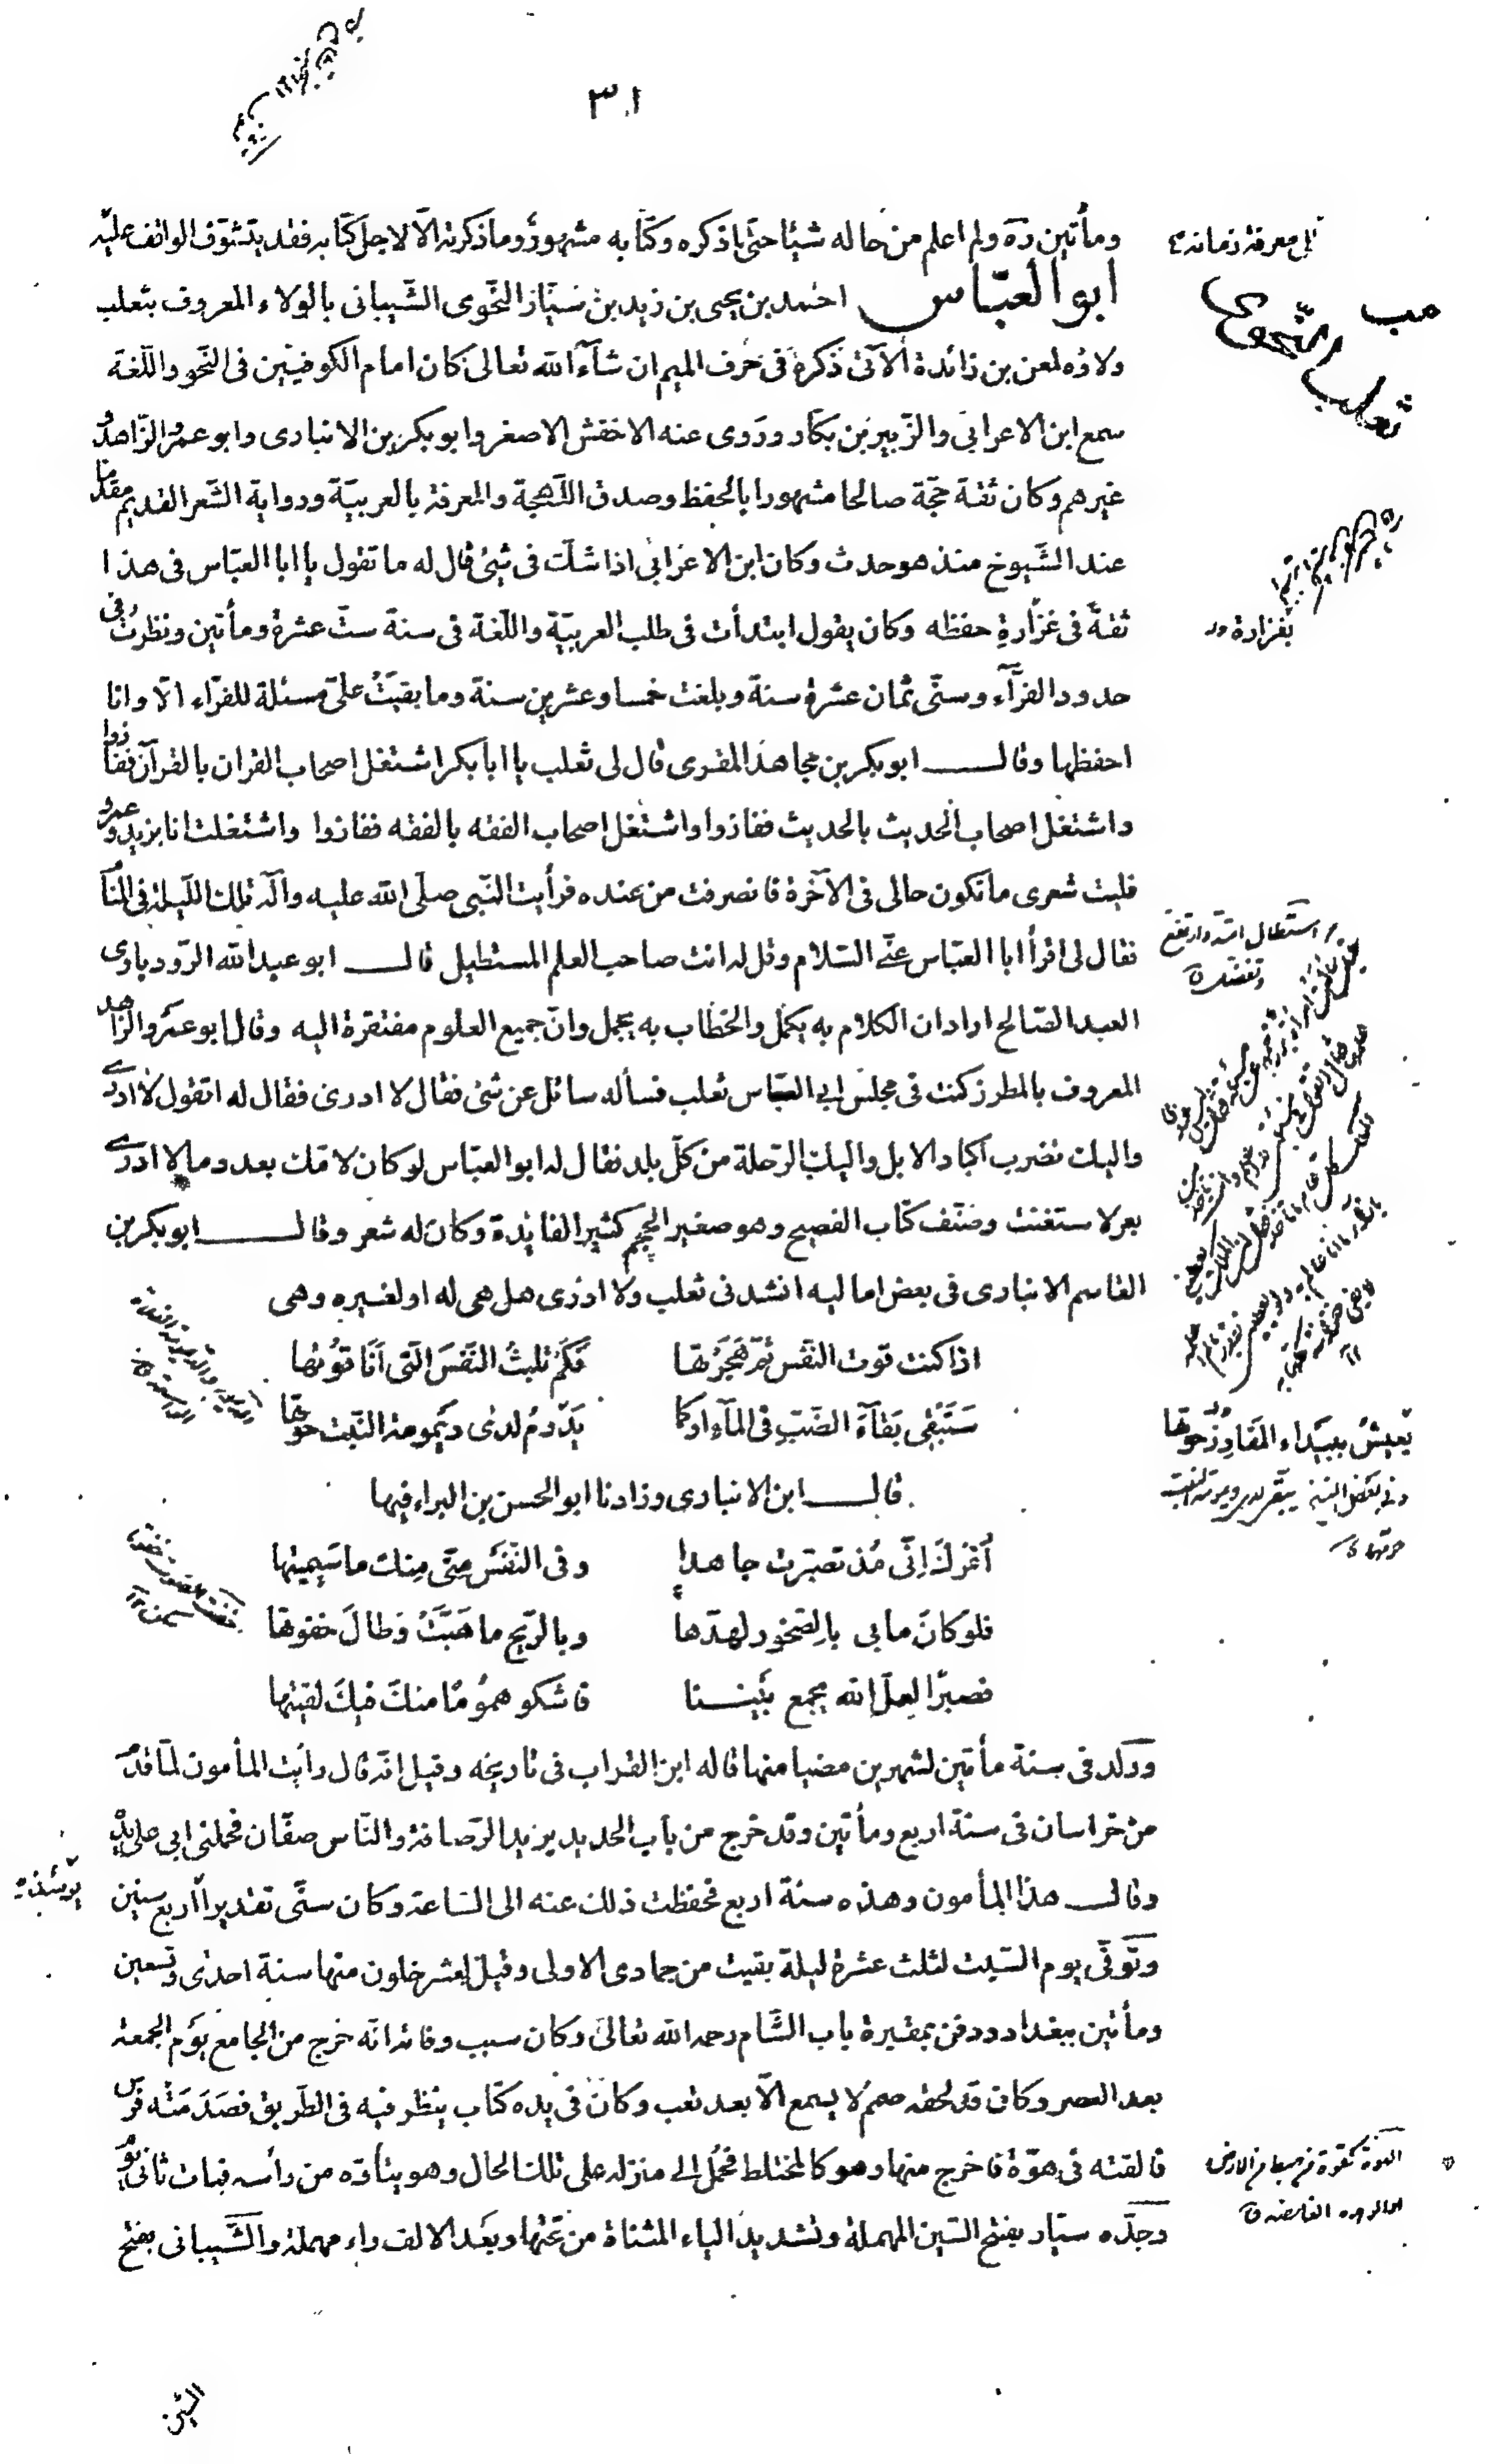 ٣٠١
ومأتين ره ولم اعلم من حاله شيئا حتى اذكره وكتابه مشهور وما ذكرته الّا لاجل كتابه فقد يتشوّف الواقف عليه
الى معرفة زمانه
ابو العبّاس احمد بن يحيى بن زيد بن سيّار النّحوى الشّيبانى بالولاء المعروف بثعلب
ثعلب النحوى
ولاؤه لمعن بن زائدة الآتى ذكره فى حرف الميم ان شآء الله تعالى كان امام الكوفيّين فى النّحو واللّغة
سمع ابن الاعرابى والزّبير بن بكّار وروى عنه الاخفش الاصغر وابو بكر بن الانبارى وابو عمر الزّاهد و
غيرهم وكان ثقة حجّة صالحا مشهورا بالحفظ وصدق اللّهجة والمعرفة بالعربيّة ورواية الشّعر القديم مقدّما
عند الشّيوخ منذ هو حدث وكان ابن الاعرابى اذا شكّ فى شئ قال له ما تقول يا ابا العبّاس فى هذا
ثقةً فى غزارةِ حفظه وكان يقول ابتدأت فى طلب العربيّة واللّغة فى سنة ستّ عشرة ومأتين ونظرتُ فى
بغزارة
حدود الفرّآء وسنّى ثمان عشرة سنة وبلغت خمسا وعشرين سنة وما بقيَتْ علىّ مسئلة للفرّاء الّا وانا
احفظها وقال ابو بكر بن مجاهد المقرى قال لى ثعلب يا ابا بكر اشتغل اصحاب القران بالقرآن ففازوا
واشتغل اصحاب الحديث بالحديث ففازوا واشتغل اصحاب الفقه بالفقه ففازوا واشتغلت انا بزيد وعمرو
فليت شعرى ما تكون حالى فى الآخرة فانصرفت من عنده فرأيت النّبى صلّى الله عليه وآله تلك اللّيلة فى المنام
فقال لى اقرأ ابا العبّاس عنّى السّلام وقل له انت صاحب العلم المستطيل قال ابو عبد الله الرّودبارى
العبد الصّالح اراد ان الكلام به يكمل والخطاب به يجمل وانّ جميع العلوم مفتقرة اليه وقال ابو عمرو الزّاهد
المعروف بالمطرز كنت فى مجلس ابى العبّاس ثعلب فسأله سائل عن شئ فقال لا ادرى فقال له اتقول لا ادرى
واليك تضرب اكباد الابل واليك الرّحلة من كلّ بلد فقال له ابو العبّاس لو كان لامّك بعدد ما لا ادرى
بعر لاستغنت وصنّف كتاب الفصيح وهو صغير الحجم كثير الفايدة وكان له شعر وقال ابو بكر بن
القاسم الانبارى فى بعض اماليه انشدنى ثعلب ولا ادرى هل هى له او لغيره وهى
اذا كنت قوت النّفس ثمّ هَجَرْتها فَكَمْ تلبثُ النّفسَ الّتى اَنَا قوُتها
سَتَبْقى بَقآءَ الضّبّ فى المآء او كما يَدّومُ لدى ديمومة النّبت حوتها
يَعيشُ ببيداء المَفاوز حوتها
قال ابن الانبارى وزادنا ابو الحسن بن البراء فيها
اَغرّكَ اِنّى مُذ تصبّرت جاهدا وفى النّفسْ مِنّى مِنك ما سَيميتها
فلو كانَ ما بى بالصّخور لهدّها وبالرّيح ما هَبّتْ وَطالَ خفوتها
فصبرًا لعلّ الله يجمع بَيْننا فاشكو همُومًا منكَ فيكَ لقيتها
ووُلد فى سنة مأتين لشهرين مضيا منها قاله ابن القراب فى تاريخه وقيل انّه قال رأيت المأمون لمّا قدم
من خراسان فى سنة اربع ومأتين وقد خرج من باب الحديد يريد الرّصافة والنّاس صفّان فحملنى ابى على يده
وقال هذا المأمون وهذه سنة اربع فحفظت ذلك عنه الى السّاعة وكان سنّى تقديراً اربع سنين
يومئذ
وتوفّى يوم السّبت لثلث عشرة ليلة بقيت من جمادى الاولى وقيل لعشر خلون منها سنة احدى وتسعين
ومأتين ببغداد ودفن بمقبرة باب الشّام رحمه الله تعالى وكان سبب وفاته انّه خرج من الجامع يوم الجمعة
بعد العصر وكان قد لحقه صمم لا يسمع الّا بعد تعب وكان فى يده كتاب ينظر فيه فى الطّريق فصَدَمَتْه فرس
فالقته فى هوّة فاخرج منها وهو كالمختلط فحُمل الى منزله على تلك الحال وهو يتأوّه من رأسه فمات ثانى يوم
وجدّه سيّار بفتح السّين المهملة وتشديد الياء المثنّاة من تحتها وبعد الالف راء مهملة والشّيبانى بفتح
الشين